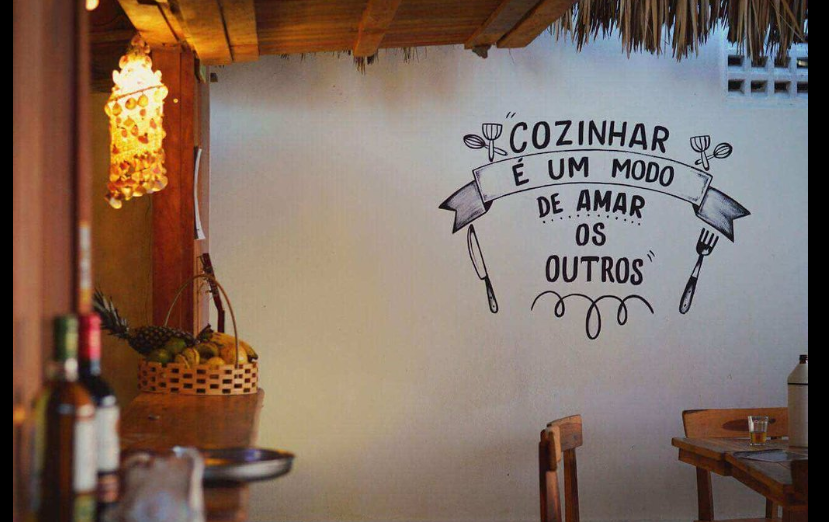 "COZINHAR
É UM MODO
DE AMAR
OS
OUTROS"